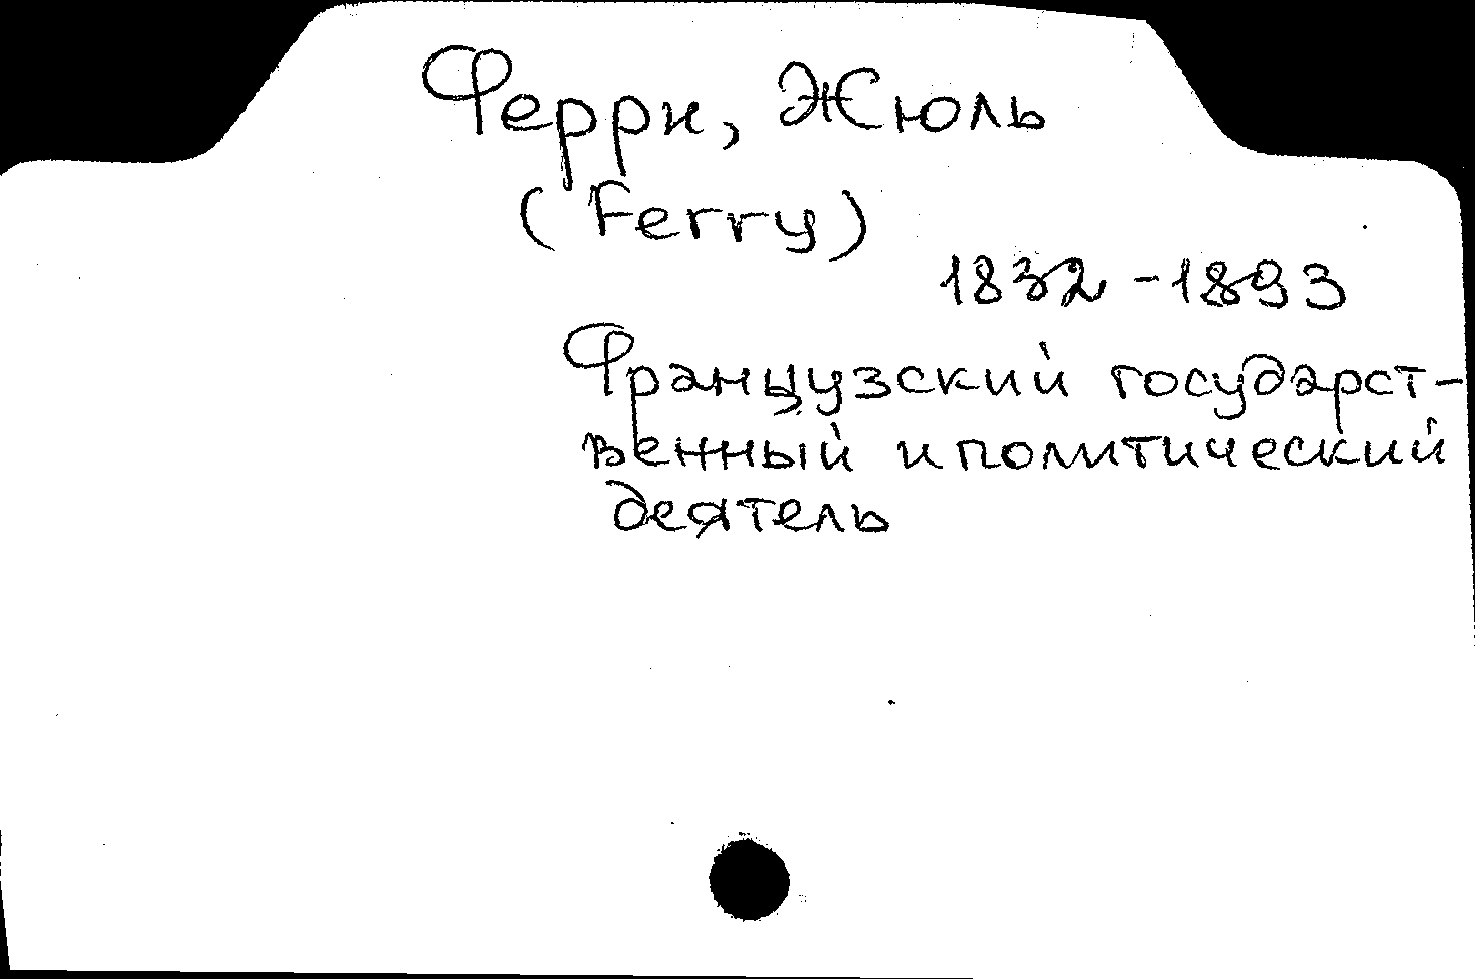 Ферри, Жюль
(Ferry)
1832-1893
Французский государст-
венный и политический
деятель